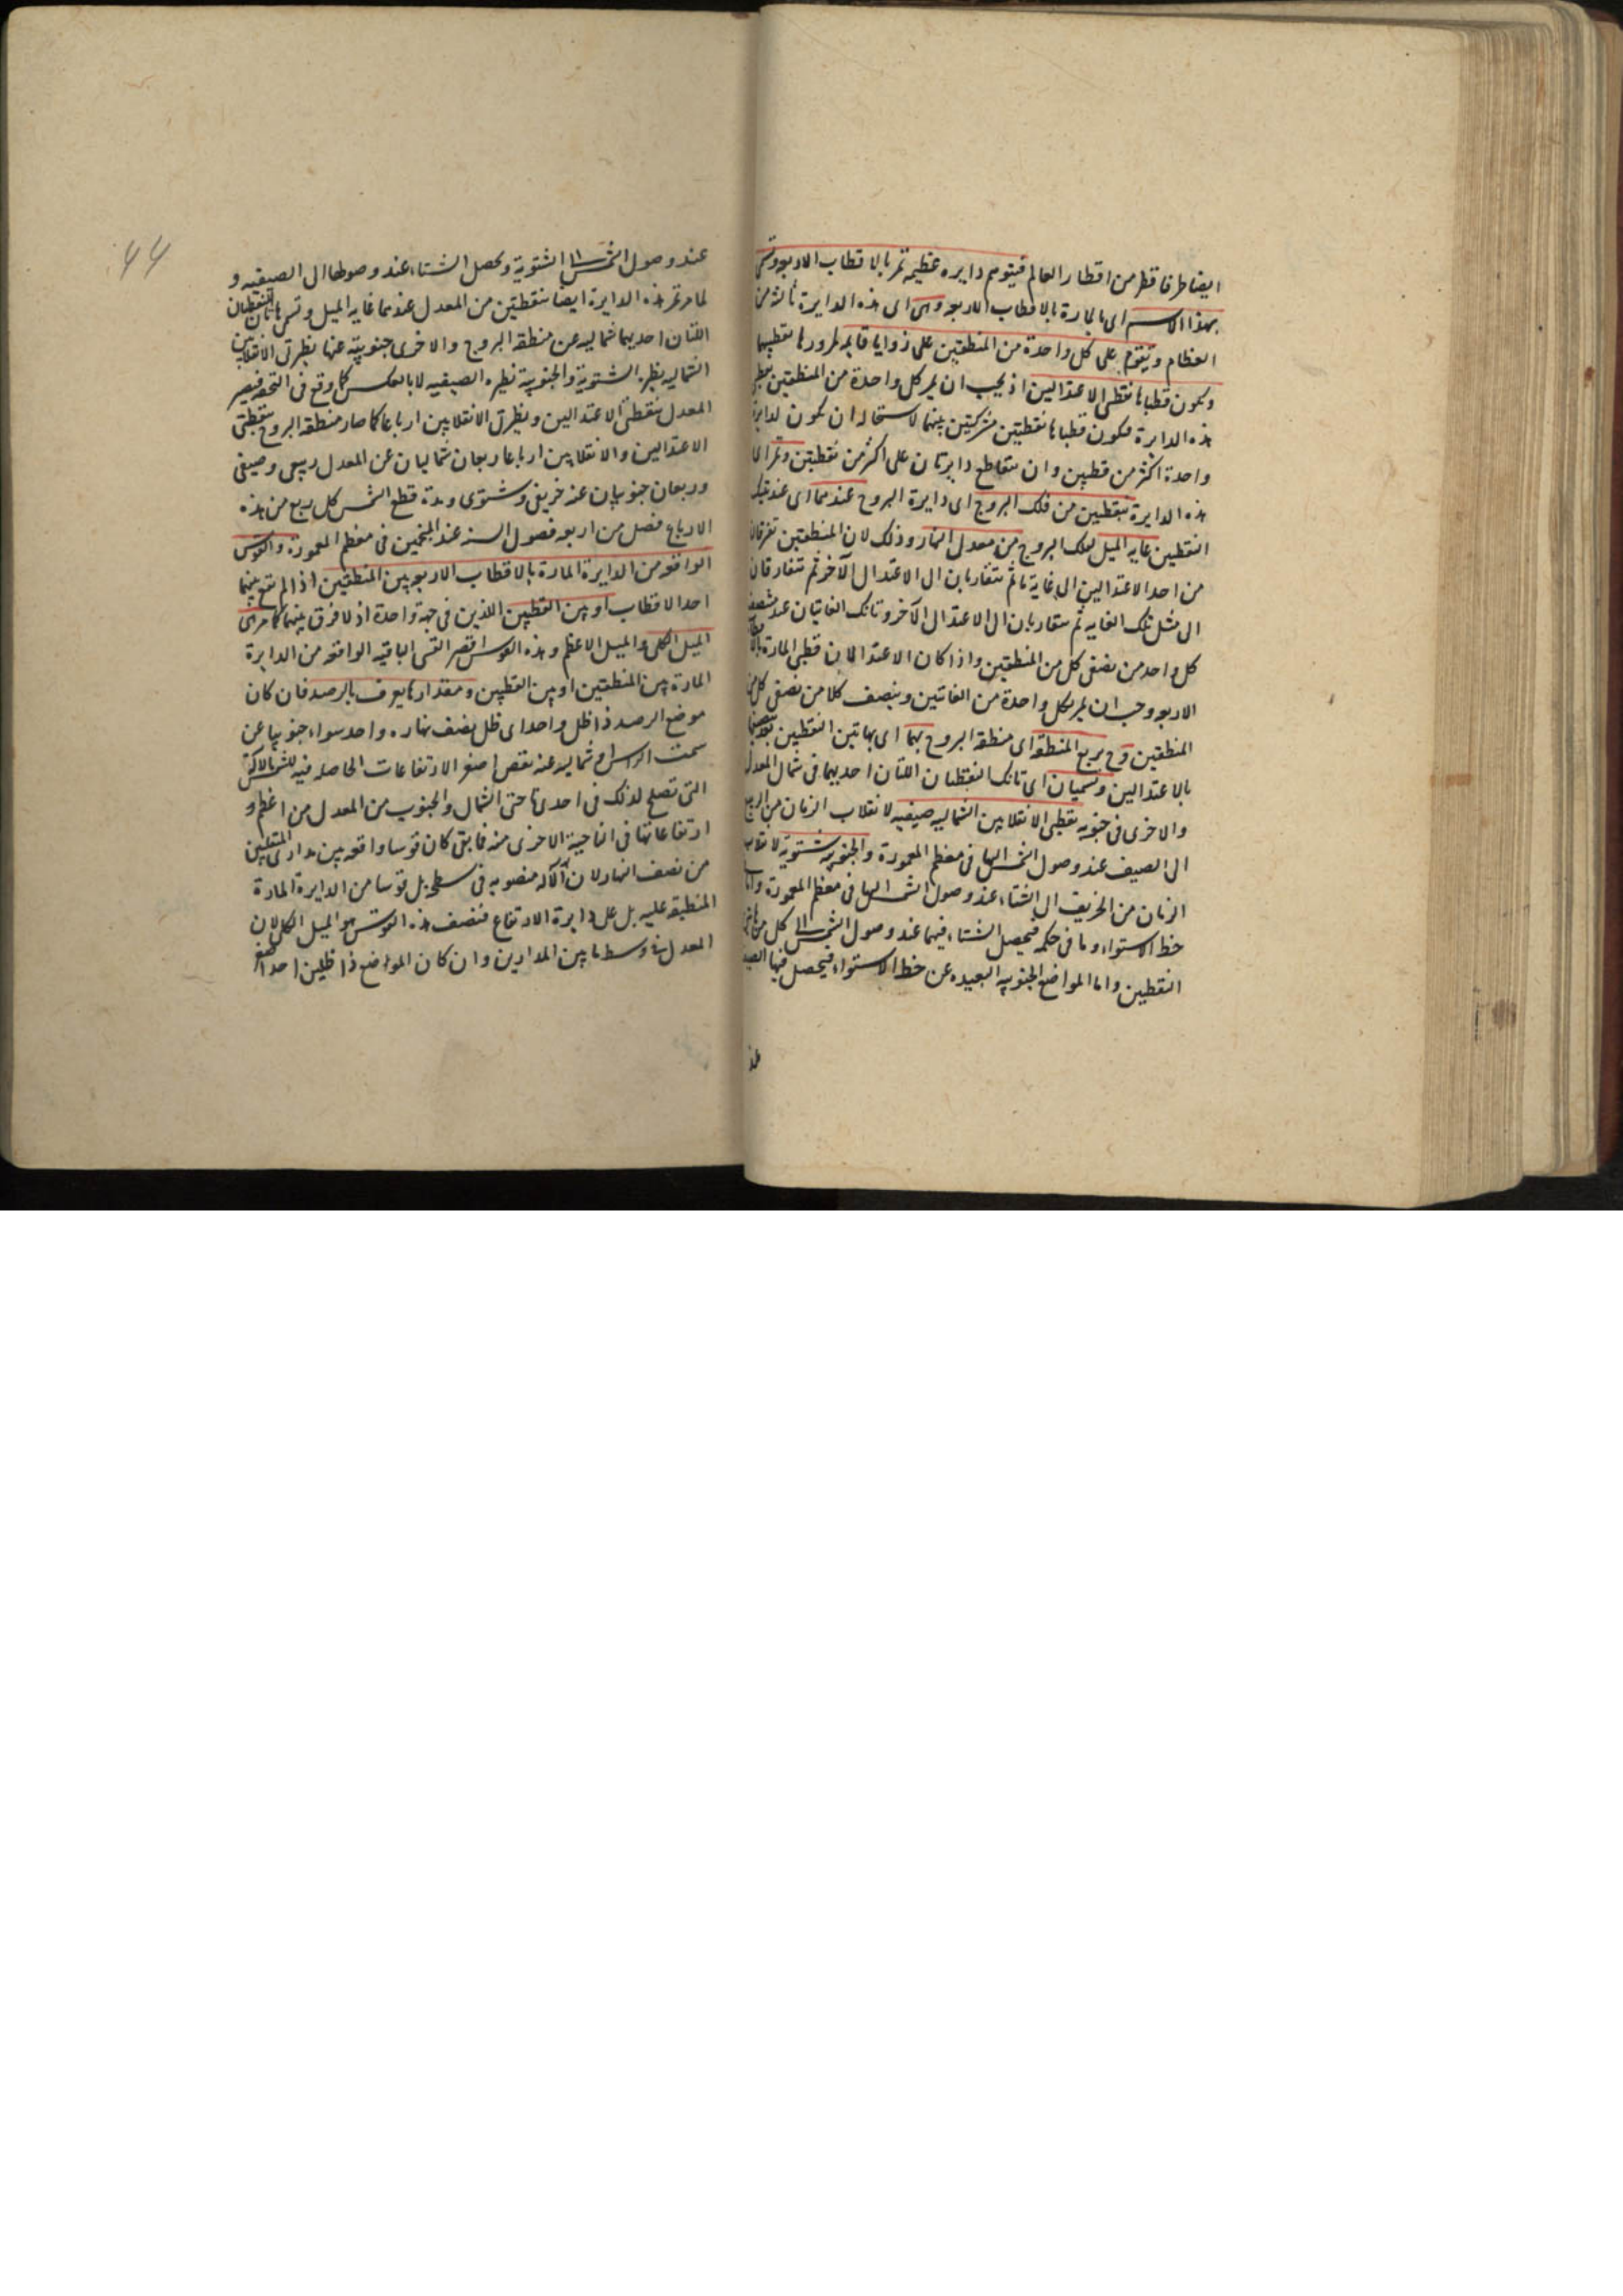 ايضا طرفا قطر من اقطار العالم فيتوهم دايره عظيمه تمر بالاقطاب الاربعه وتسمى
بهذا الاسم اى بالمارة بالاقطاب الاربعه وهى اى هذه الدايرة ثالثه من
العظام وتقوم على كل واحدة من المنطقتين على زوايا قايمه لمرورها بقطبيهما
ويكون قطباها نقطتى الاعتدالين اذ يجب ان يمر كل واحدة من المنطقتين بقطبى
هذه الدايرة فيكون قطباها نقطتين مشتركتين بينهما لاستحالة ان يكون لدايرة
واحدة اكثر من قطبين وان يتقاطع دايرتان على اكثر من نقطتين وتمر اى
هذه الدايرة بنقطتين من فلك البروج اى دايرة البروج عندهما اى عند تينك
النقطتين غايه الميل لفلك البروج من معدل النهار وذلك لان المنطقتين تفترقان
من احد الاعتدالين الى غاية ما ثم تتقاربان الى الاعتدال الآخر ثم تتفارقان
الى مثل تلك الغايه ثم يتقاربان الى الاعتدال الآخر وتانك الغايتان عند منتصف
كل واحد من نصفى كل من المنطقتين واذا كان الاعتدالان قطبى المارة بالاقطاب
الاربعه وجب ان يمر بكل واحدة من الغايتين وينصف كلا من نصفى كل من
المنطقتين وح يربع المنطقة اى منطقة البروج بهما اى بهاتين النقطتين
بالاعتدالين وتسميان اى تانك النقطتان اللتان احديهما فى شمال المعدل
والاخرى فى جنوبه نقطتى الانقلابين الشماليه صيفيه لانقلاب الزمان من الربيع
الى الصيف عند وصول الشمس اليها فى معظم المعمورة والجنوبيه شتويه لانقلاب
الزمان من الخريف الى الشتاء عند وصول الشمس اليها فى معظم المعمورة واما
خط الاستواء وما فى حكمه فيحصل الشتاء فيهما عند وصول الشمس الى كل من هاتين
النقطتين واما المواضع الجنوبيه البعيده عن خط الاستواء فيحصل فيها الصيف
عند
عند وصول الشمس الى الشتوية ويحصل الشتاء عند وصولها الى الصيفيه و
لما مر تمر هذه الدايرة ايضا بنقطتين من المعدل عندهما غايه الميل وتسمى هاتان النقطتان
اللتان احديهما شماليه عن منطقه البروج والاخرى جنوبيه عنها نظيرتى الانقلابين
الشماليه نظيرة الشتوية والجنوبية نظيره الصيفيه لا بالعكس كما وقع فى التحفه فيصير
المعدل بنقطتى الاعتدالين ونظيرتى الانقلابين ارباعا كما صار منطقه البروج بنقطتى
الاعتدالين والانقلابين ارباعا ربعان شماليان عن المعدل ربيعى وصيفى
وربعان جنوبيان عنه خريفى وشتوى ومدة قطع الشمس كل ربع من هذه
الارباع فصل من اربعه فصول السنه عند المنجمين فى معظم المعمورة والقوس
الواقعه من الدايرة المارة بالاقطاب الاربعه بين المنطقتين اذا لم تقع بينهما
احد الاقطاب او بين القطبين اللذين فى جهة واحدة اذ لا فرق بينهما كما مر هى
الميل الكلى والميل الاعظم وهذه القوس اقصر القسى الباقيه الواقعه من الدايرة
المارة بين المنطقتين او بين القطبين ومقدارها يعرف بالرصد فان كان
موضع الرصد ذا ظل واحد اى ظل نصف نهاره واحد سواء جنوبيا عن
سمت الراس او شماليه عنه نقص اصغر الارتفاعات الحاصله فيه للشمس بالآلة
التى تصلح لذلك فى احدى ناحيتى الشمال والجنوب من المعدل من اعظم
ارتفاعاتها فى الناحية الاخرى منه فما بقى كان قوسا واقعه بين مدارى المنقلبين
من نصف النهار لان الآله منصوبه فى سطحه بل قوسا من الدايرة المارة
المنطبقه عليه بل على دايرة الارتفاع فنصف هذه القوس هو الميل الكلى لان
المعدل فى وسط ما بين المدارين وان كان الموضع ذا ظلين احد